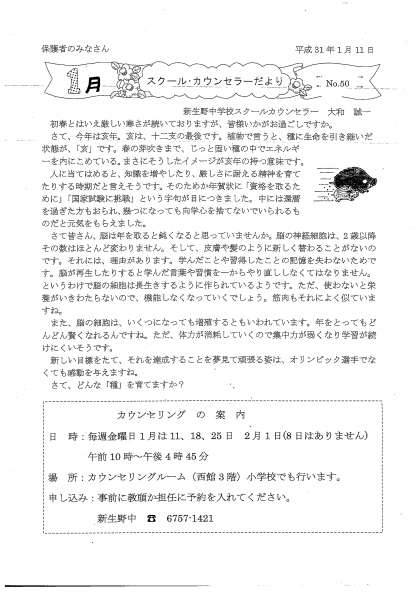 保護者のみなさん　平成31年1月11日
1月　スクール・カウンセラーだより　No.50
新生野中学校スクールカウンセラー　大和　誠一
初春とはいえ厳しい寒さが続いておりますが、皆様いかがお過ごしですか。
さて、今年は亥年。亥は、十二支の最後です。植物で言うと、種に生命を引き継いだ
状態が、「亥」です。春の芽吹きまで、じっと固い種の中でエネルギ
ーを内にこめている。まさにそうしたイメージが亥年の持つ意味です。
人に当てはめると、知識を増やしたり、厳しさに耐える精神を育て
たりする時期だと言えそうです。そのためか年賀状に「資格を取るた
めに」「国家試験に挑戦」という字句が目につきました。中には還暦
を過ぎた方もおられ、幾つになっても向学心を捨てないでいられるも
のだと元気をもらえました。
さて皆さん、脳は年を取ると鈍くなると思っていませんか。脳の神経細胞は、2歳以降
その数はほとんど変わりません。そして、皮膚や髪のように新しく替わることがないの
です。それには、理由があります。学んだことや習得したことの記憶を失わないためで
す。脳が再生したりすると学んだ言葉や習慣を一からやり直ししなくてはなりません。
というわけで脳の細胞は長生きするように作られているようです。ただ、使わないと栄
養がいきわたらないので、機能しなくなっていくでしょう。筋肉もそれによく似ていま
すね。
また、脳の細胞は、いくつになっても増殖するともいわれています。年をとってもど
んどん賢くなれるんですね。ただ、体力が消耗していくので集中力が弱くなり学習が続
けにくいそうです。
新しい目標をたて、それを達成することを夢見て頑張る姿は、オリンピック選手でな
くても感動を与えますね。
さて、どんな「種」を育てますか？
カウンセリング　の　案　内
日　時：毎週金曜日1月は11、18、25日　2月1日(8日はありません)
午前10時～午後4時45分
場　所：カウンセリングルーム（西館3階）小学校でも行います。
申し込み：事前に教頭か担任に予約を入れてください。
新生野中　☎　6757-1421